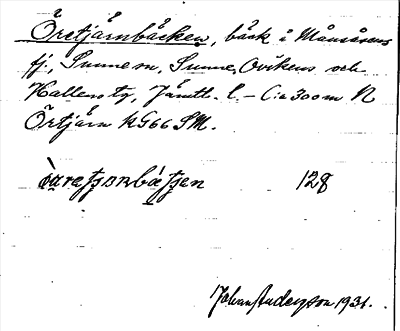 Öretjärnbäcken, bäck i Månsåsens
fj., Sunne sn, Sunne, Ovikens och
Hallens tg, Jämtl. l. – C:a 300 m N
Örtjärn KG66 SM.
128
Johan Anderson 1931.